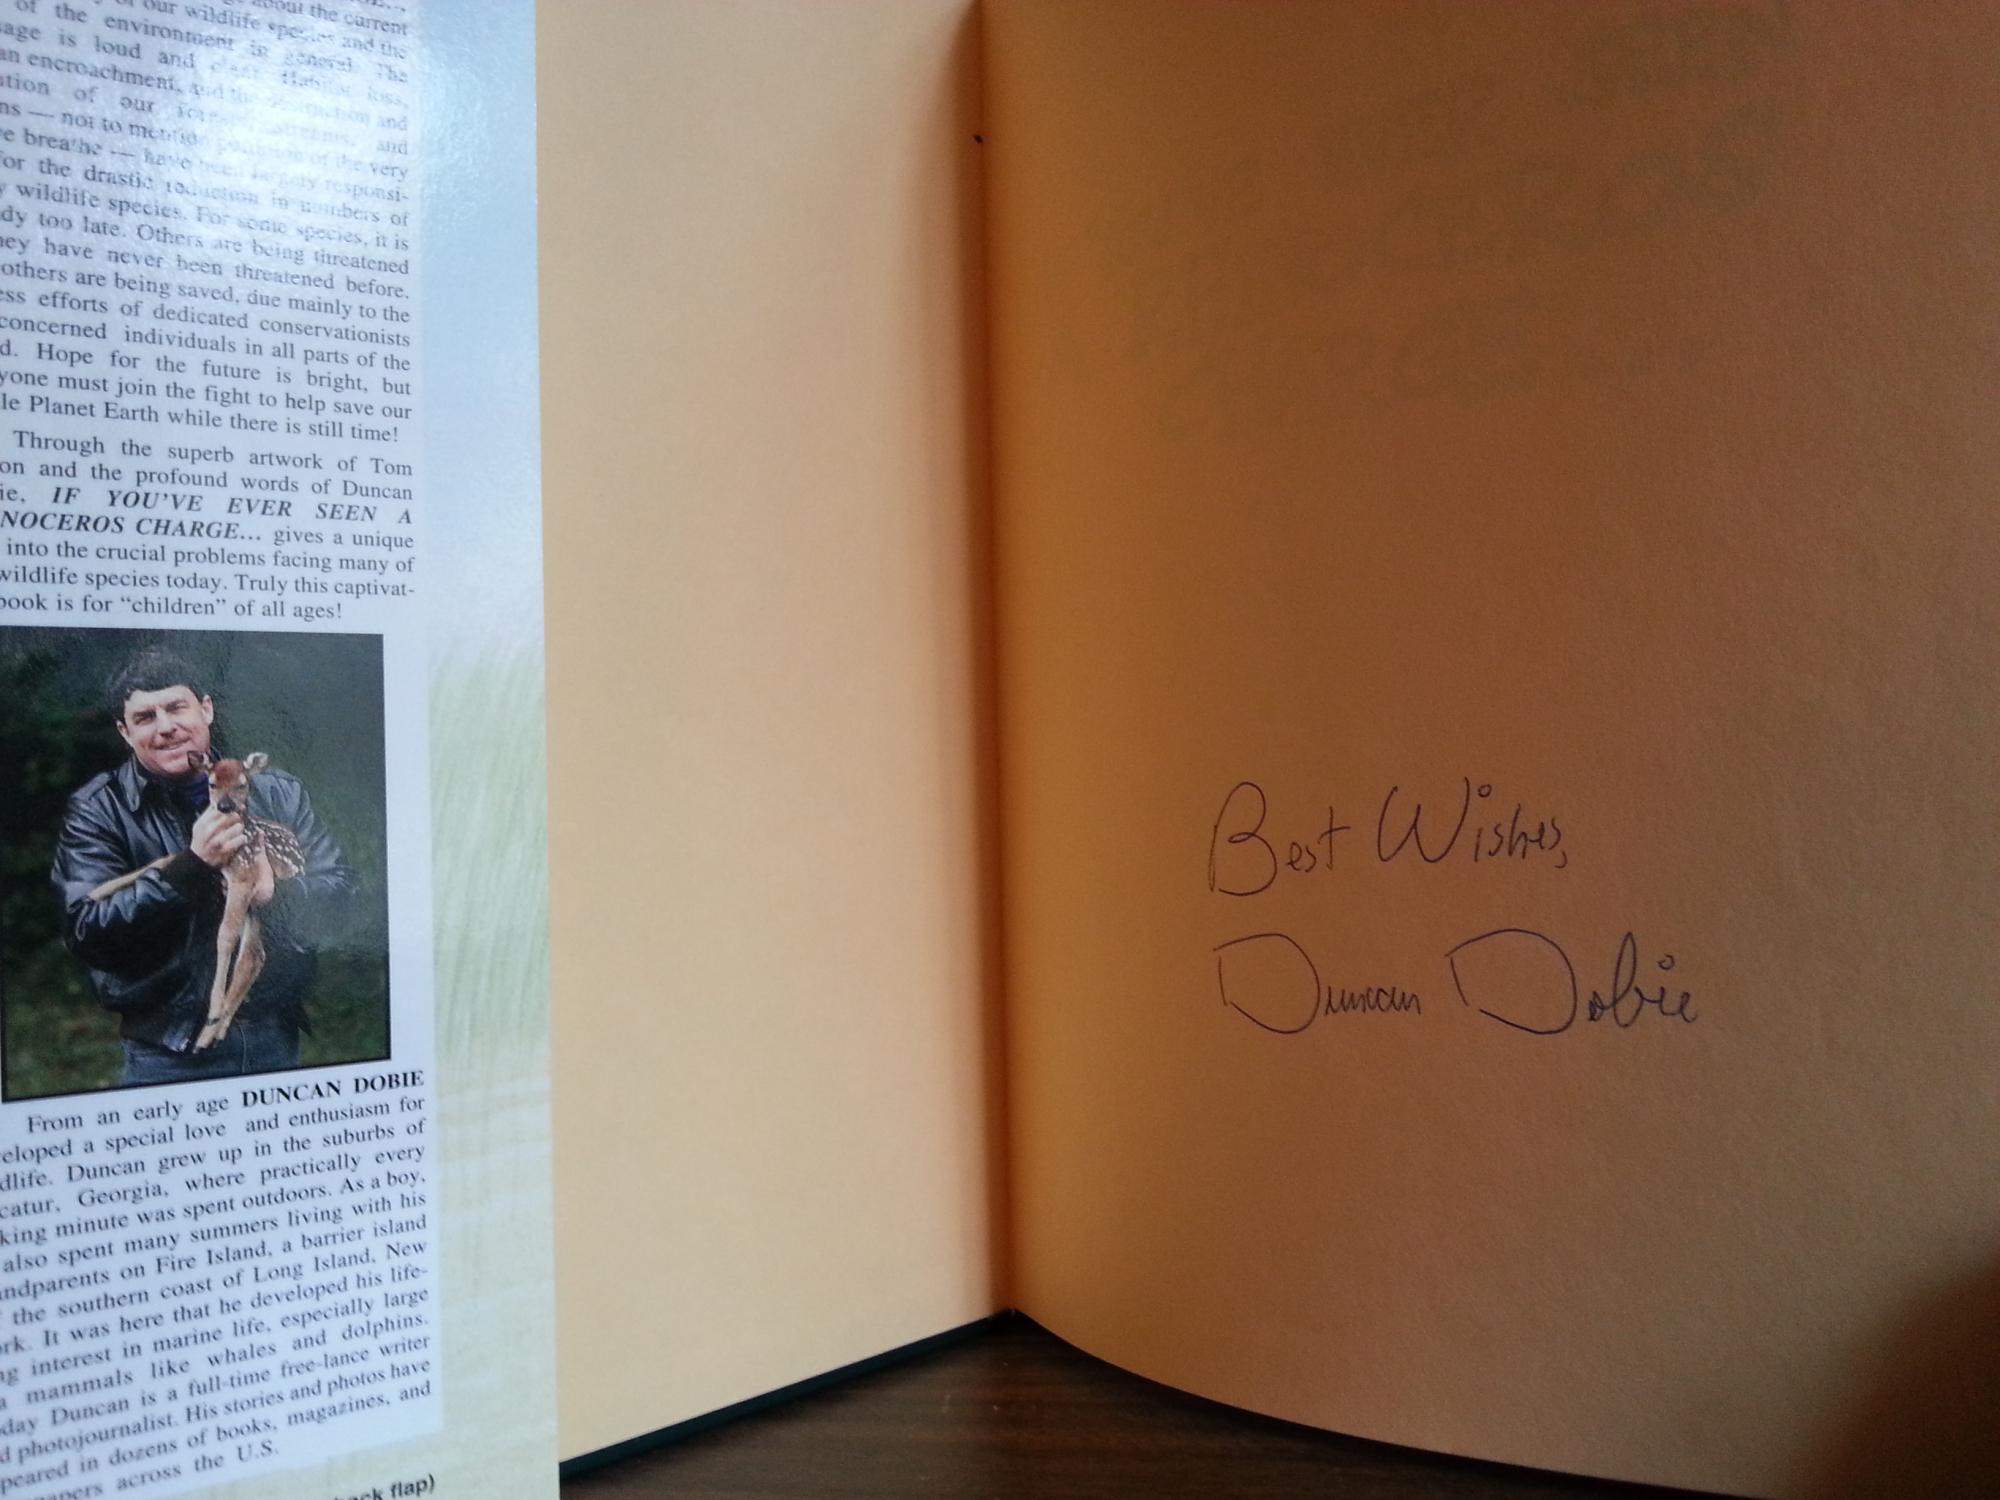 of our wildlife species and the
of the environment in general. The
age is loud and clear. Habitat loss,
an encroachment, and the destruction and
tion of our forests, streams, and
ns — not to mention pollution of the very
e breathe — have been largely responsi-
for the drastic reduction in numbers of
y wildlife species. For some species, it is
dy too late. Others are being threatened
hey have never been threatened before.
others are being saved, due mainly to the
ess efforts of dedicated conservationists
concerned individuals in all parts of the
d. Hope for the future is bright, but
yone must join the fight to help save our
le Planet Earth while there is still time!
Through the superb artwork of Tom
on and the profound words of Duncan
ie, IF YOU'VE EVER SEEN A
NOCEROS CHARGE... gives a unique
into the crucial problems facing many of
wildlife species today. Truly this captivat-
book is for “children” of all ages!
From an early age DUNCAN DOBIE
eloped a special love and enthusiasm for
dlife. Duncan grew up in the suburbs of
catur, Georgia, where practically every
king minute was spent outdoors. As a boy,
also spent many summers living with his
ndparents on Fire Island, a barrier island
the southern coast of Long Island, New
rk. It was here that he developed his life-
ng interest in marine life, especially large
a mammals like whales and dolphins.
day Duncan is a full-time free-lance writer
d photojournalist. His stories and photos have
peared in dozens of books, magazines, and
papers across the U.S.
back flap)
Best Wishes,
Duncan Dobie